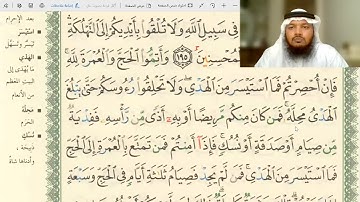 فِى سَبِيلِ ٱللَّهِ وَلَا تُلْقُوا۟ بِأَيْدِيكُمْ إِلَى ٱلتَّهْلُكَةِ
ٱلْمُحْسِنِينَ ١٩٥ وَأَتِمُّوا۟ ٱلْحَجَّ وَٱلْعُمْرَةَ لِلَّهِ
فَإِنْ أُحْصِرْتُمْ فَمَا ٱسْتَيْسَرَ مِنَ ٱلْهَدْىِ وَلَا تَحْلِقُوا۟ رُءُوسَكُمْ حَتَّىٰ يَبْلُغَ
ٱلْهَدْىُ مَحِلَّهُۥ فَمَن كَانَ مِنكُم مَّرِيضًا أَوْ بِهِۦٓ أَذًى مِّن رَّأْسِهِۦ فَفِدْيَةٌ
مِّن صِيَامٍ أَوْ صَدَقَةٍ أَوْ نُسُكٍ فَإِذَآ أَمِنتُمْ فَمَن تَمَتَّعَ بِٱلْعُمْرَةِ إِلَى ٱلْحَجِّ
فَمَا ٱسْتَيْسَرَ مِنَ ٱلْهَدْىِ فَمَن لَّمْ يَجِدْ فَصِيَامُ ثَلَٰثَةِ أَيَّامٍ فِى ٱلْحَجِّ وَسَبْعَةٍ
بعد الإحرام
اسْتَيْسَرَ
تيسّر وتسهّل
الهَدْي
ما يُهدى إلى
البيت المعظم
من الأنعام
مَحِلَّهُ
الحرم
نُسُك
ذبيحة ،
وأدناها شاة